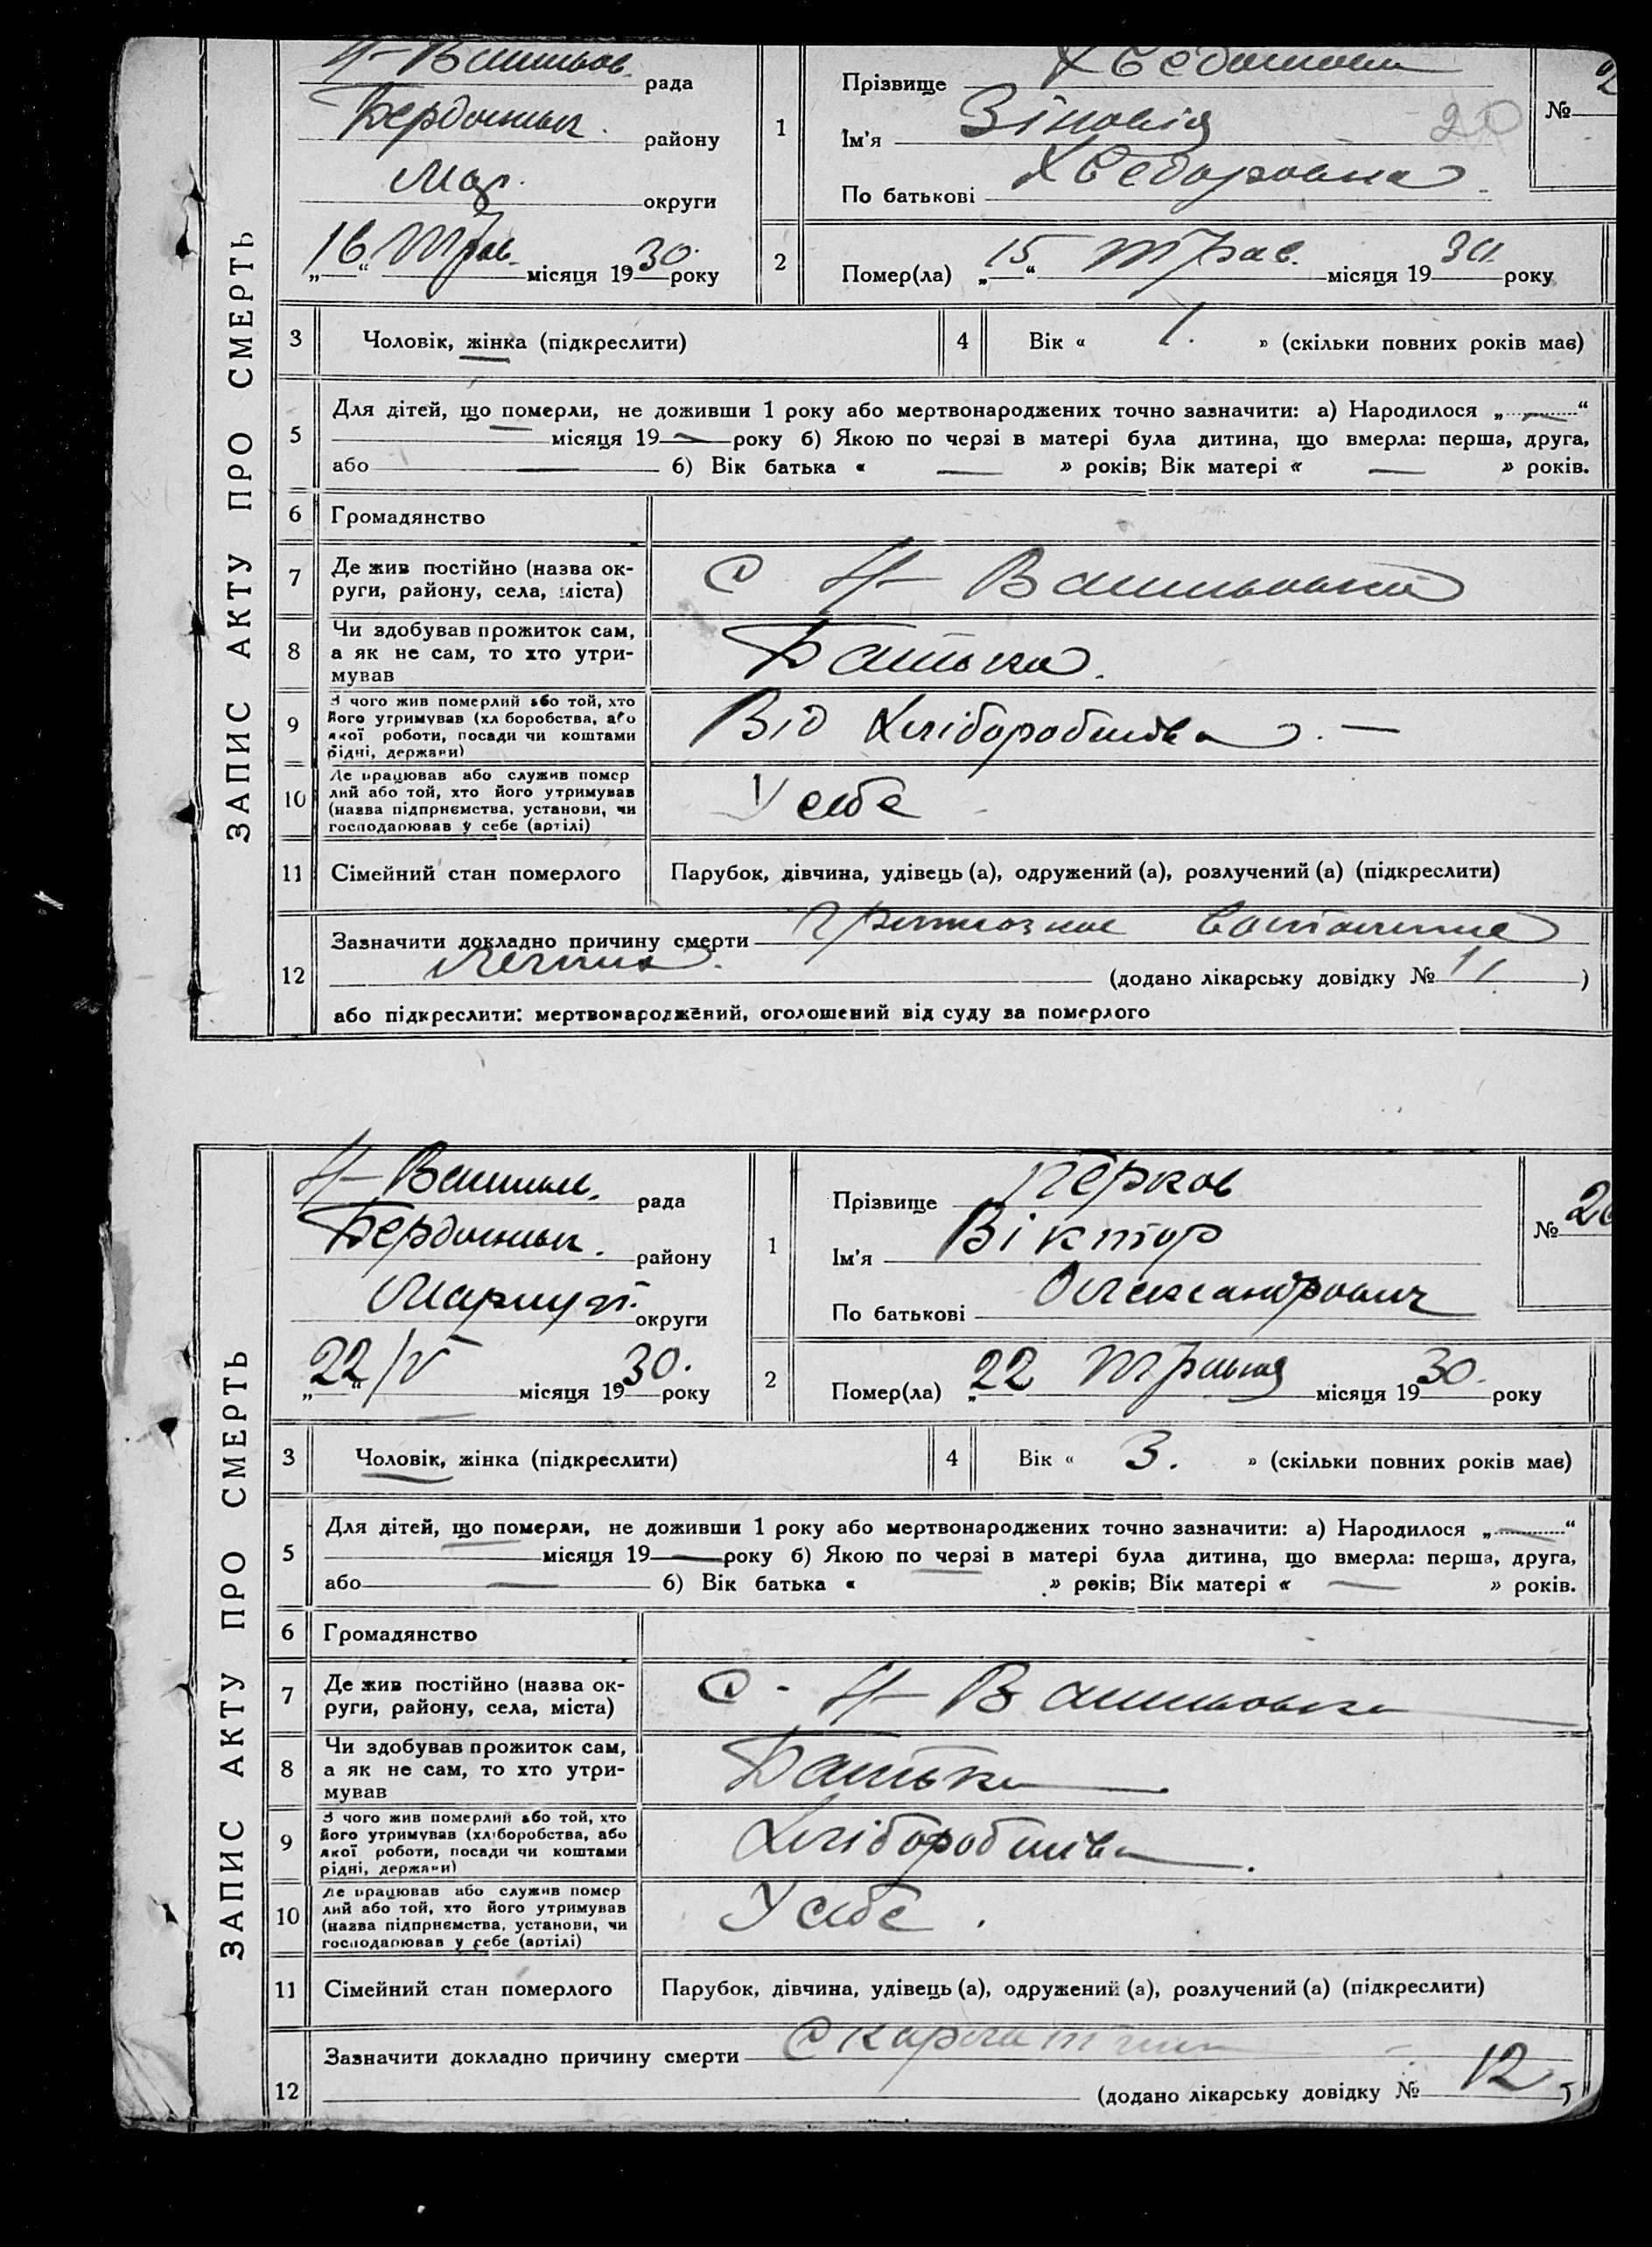 ЗАПИС АКТУ ПРО СМЕРТЬ
Н-Васильов. рада
Бердянськ. району
Мар. округи
„16“ Трав. місяця 1930. року
1
Прізвище
Ім'я Зіновія
По батькові Хведоровна
20
№
2
Помер(ла) „15“ Трав. місяця 1930. року
3 Чоловік, жінка (підкреслити)
4 Вік « 1. » (скільки повних років має)
5 Для дітей, що померли, не доживши 1 року або мертвонароджених точно зазначити: а) Народилося „—“
місяця 19—року б) Якою по черзі в матері була дитина, що вмерла: перша, друга,
або — б) Вік батька « — » років; Вік матері « — » років.
6 Громадянство
7 Де жив постійно (назва ок-
руги, району, села, міста)
С. Н-Васильовка
8 Чи здобував прожиток сам,
а як не сам, то хто утри-
мував
Батько.
9 З чого жив померлий або той, хто
його утримував (хліборобства, або
якої роботи, посади чи коштами
рідні, держави)
Від хліборобства. —
10 Де працював або служив помер
лий або той, хто його утримував
(назва підприємства, установи, чи
господарював у себе (артілі)
У себе
11 Сімейний стан померлого
Парубок, дівчина, удівець (а), одружений (а), розлучений (а) (підкреслити)
12 Зазначити докладно причину смерти
(додано лікарську довідку № 11 )
або підкреслити: мертвонароджений, оголошений від суду за померлого
ЗАПИС АКТУ ПРО СМЕРТЬ
Н-Васильов. рада
Бердянськ. району
Маріуп. округи
„22“/V місяця 1930. року
1
Прізвище Перков
Ім'я Віктор
По батькові Олександрович
№ 2
2
Помер(ла) „22 травня місяця 1930. року
3 Чоловік, жінка (підкреслити)
4 Вік « 3. » (скільки повних років має)
5 Для дітей, що померли, не доживши 1 року або мертвонароджених точно зазначити: а) Народилося „—“
місяця 19—року б) Якою по черзі в матері була дитина, що вмерла: перша, друга,
або — б) Вік батька « » років; Вік матері « — » років.
6 Громадянство
7 Де жив постійно (назва ок-
руги, району, села, міста)
С. Н-Васильовка
8 Чи здобував прожиток сам,
а як не сам, то хто утри-
мував
Батько.
9 З чого жив померлий або той, хто
його утримував (хліборобства, або
якої роботи, посади чи коштами
рідні, держави)
Хліборобства.
10 Де працював або служив помер
лий або той, хто його утримував
(назва підприємства, установи, чи
господарював у себе (артілі)
У себе.
11 Сімейний стан померлого
Парубок, дівчина, удівець (а), одружений (а), розлучений (а) (підкреслити)
12 Зазначити докладно причину смерти Скарлатина
(додано лікарську довідку № 12 )